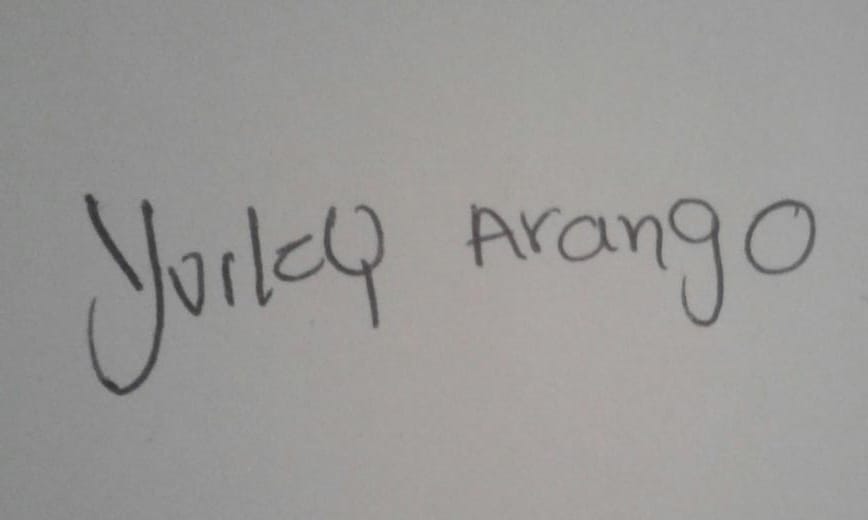 Yurley Arango